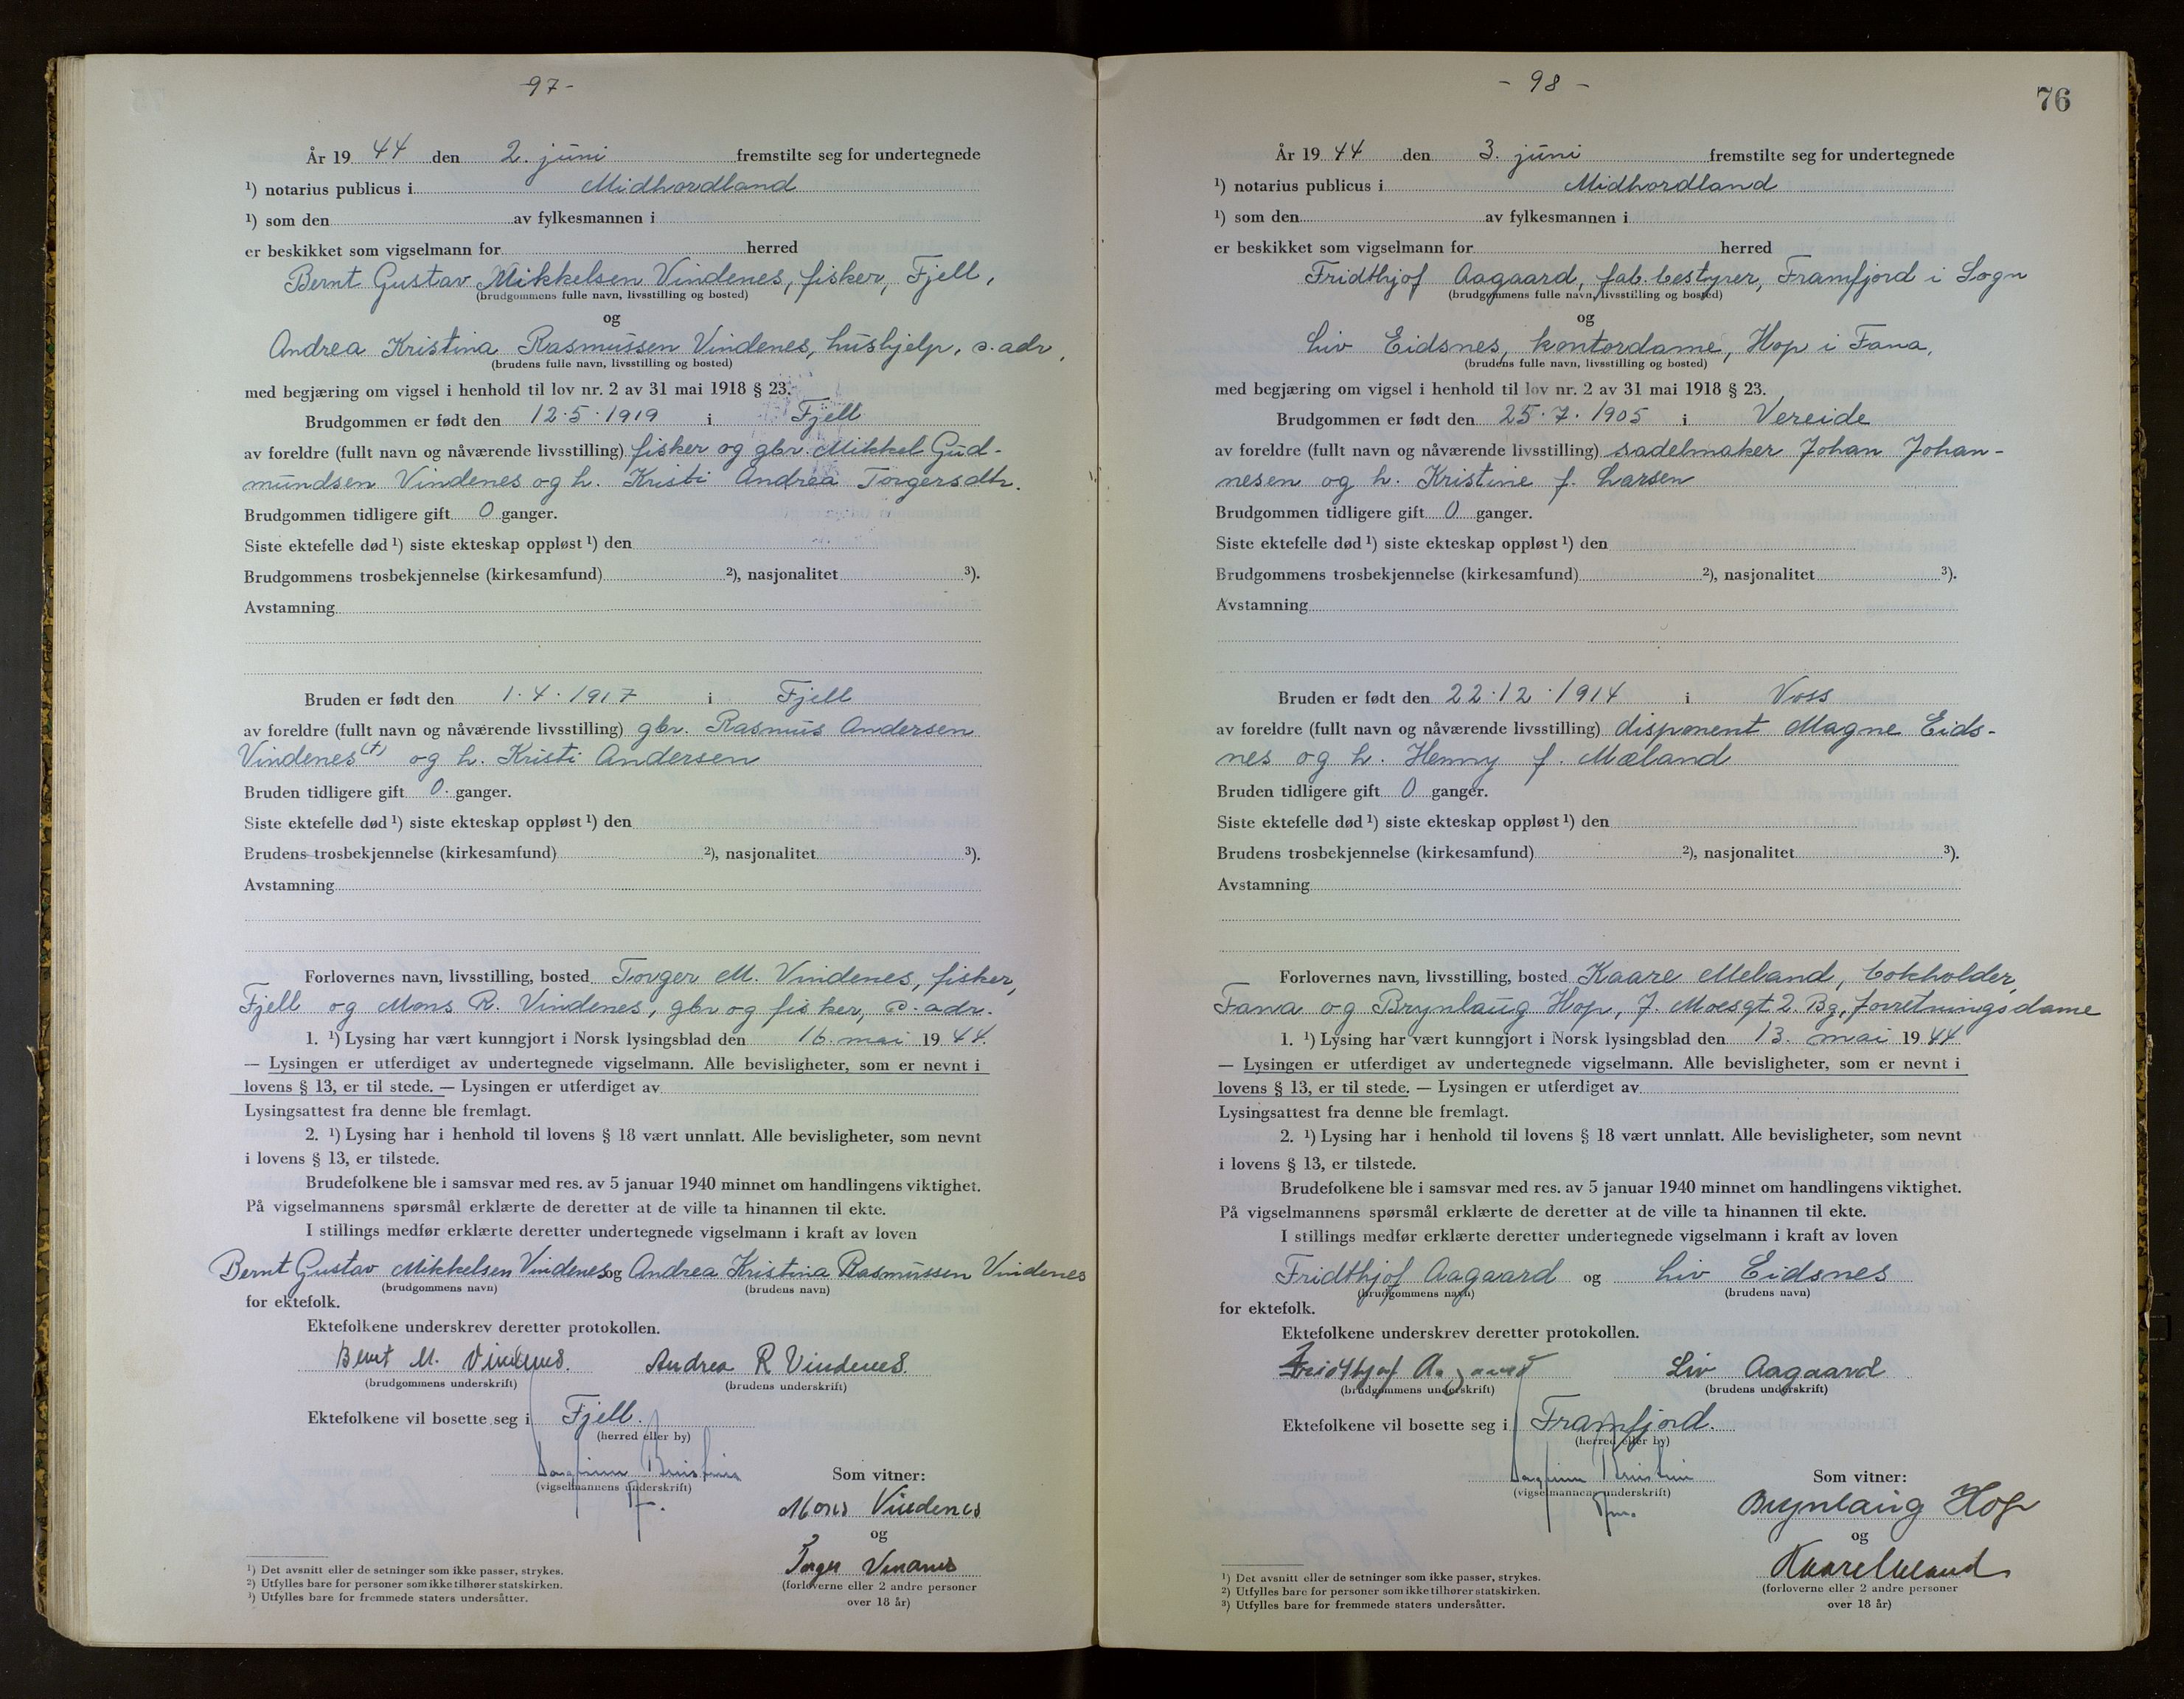 -97-
År 19 44 den 2. juni fremstilte seg for undertegnede
¹) notarius publicus i Midhordland
¹) som den av fylkesmannen i
er beskikket som vigselmann for herred
Bernt Gustav Mikkelsen Vindenes, fisker, Fjell,
(brudgommens fulle navn, livsstilling og bosted)
og
Andrea Kristina Rasmussen Vindenes, hushjelp, s. adr,
(brudens fulle navn, livsstilling og bosted)
med begjæring om vigsel i henhold til lov nr. 2 av 31 mai 1918 § 23.
Brudgommen er født den 12.5.1919 i Fjell
av foreldre (fullt navn og nåværende livsstilling) fisker og gbr. Mikkel Gud-
mundsen Vindenes og h. Kristi Andrea Torgersdtr.
Brudgommen tidligere gift 0 ganger.
Siste ektefelle død ¹) siste ekteskap oppløst ¹) den
Brudgommens trosbekjennelse (kirkesamfund) ²), nasjonalitet ³).
Avstamning
Bruden er født den 1.4.1917 i Fjell
av foreldre (fullt navn og nåværende livsstilling) gbr. Rasmus Andersen
Vindenes (†) og h. Kristi Andersen
Bruden tidligere gift 0. ganger.
Siste ektefelle død ¹) siste ekteskap oppløst ¹) den
Brudens trosbekjennelse (kirkesamfund) ²), nasjonalitet ³).
Avstamning
Forlovernes navn, livsstilling, bosted Torger M. Vindenes, fisker,
Fjell og Mons R. Vindenes, gbr og fisker, s. adr.
1. ¹) Lysing har vært kunngjort i Norsk lysingsblad den 16. mai 19 44.
— Lysingen er utferdiget av undertegnede vigselmann. Alle bevisligheter, som er nevnt i
lovens § 13, er til stede. — Lysingen er utferdiget av
Lysingsattest fra denne ble fremlagt.
2. ¹) Lysing har i henhold til lovens § 18 vært unnlatt. Alle bevisligheter, som nevnt
i lovens § 13, er tilstede.
Brudefolkene ble i samsvar med res. av 5 januar 1940 minnet om handlingens viktighet.
På vigselmannens spørsmål erklærte de deretter at de ville ta hinannen til ekte.
I stillings medfør erklærte deretter undertegnede vigselmann i kraft av loven
Bernt Gustav Mikkelsen Vindenes og Andrea Kristina Rasmussen Vindenes
(brudgommens navn) (brudens navn)
for ektefolk.
Ektefolkene underskrev deretter protokollen.
Bernt M. Vindenes. Andrea R Vindenes.
(brudgommens underskrift) (brudens underskrift)
Ektefolkene vil bosette seg i Fjell.
(herred eller by)
Som vitner:
(vigselmannens underskrift)
Mons Vindenes
og
Torger Vindenes
(forloverne eller 2 andre personer
over 18 år)
¹) Det avsnitt eller de setninger som ikke passer, strykes.
²) Utfylles bare for personer som ikke tilhører statskirken.
³) Utfylles bare for fremmede staters undersåtter.
- 98 -
76
År 19 44 den 3. juni fremstilte seg for undertegnede
¹) notarius publicus i Midhordland
¹) som den av fylkesmannen i
er beskikket som vigselmann for herred
Fridthjof Aagaard, fab.bestyrer, Framfjord i Sogn
(brudgommens fulle navn, livsstilling og bosted)
og
Liv Eidsnes, kontordame, Hop i Fana,
(brudens fulle navn, livsstilling og bosted)
med begjæring om vigsel i henhold til lov nr. 2 av 31 mai 1918 § 23.
Brudgommen er født den 25.7.1905 i Vereide
av foreldre (fullt navn og nåværende livsstilling) sadelmaker Johan Johan-
nesen og h. Kristine f. Larsen
Brudgommen tidligere gift 0 ganger.
Siste ektefelle død ¹) siste ekteskap oppløst ¹) den
Brudgommens trosbekjennelse (kirkesamfund) ²), nasjonalitet ³).
Avstamning
Bruden er født den 22.12.1914 i Voss
av foreldre (fullt navn og nåværende livsstilling) disponent Magne Eids-
nes og h. Henny f. Mæland
Bruden tidligere gift 0 ganger.
Siste ektefelle død ¹) siste ekteskap oppløst ¹) den
Brudens trosbekjennelse (kirkesamfund) ²), nasjonalitet ³).
Avstamning
Forlovernes navn, livsstilling, bosted Kaare Meland, bokholder,
Fana og Brynlaug Hop, J. Moesgt 2. Bg, forretningsdame
1. ¹) Lysing har vært kunngjort i Norsk lysingsblad den 13. mai 19 44
— Lysingen er utferdiget av undertegnede vigselmann. Alle bevisligheter, som er nevnt i
lovens § 13, er til stede. — Lysingen er utferdiget av
Lysingsattest fra denne ble fremlagt.
2. ¹) Lysing har i henhold til lovens § 18 vært unnlatt. Alle bevisligheter, som nevnt
i lovens § 13, er tilstede.
Brudefolkene ble i samsvar med res. av 5 januar 1940 minnet om handlingens viktighet.
På vigselmannens spørsmål erklærte de deretter at de ville ta hinannen til ekte.
I stillings medfør erklærte deretter undertegnede vigselmann i kraft av loven
Fridthjof Aagaard og Liv Eidsnes
(brudgommens navn) (brudens navn)
for ektefolk.
Ektefolkene underskrev deretter protokollen.
Fridthjof Aagaard Liv Aagaard
(brudgommens underskrift) (brudens underskrift)
Ektefolkene vil bosette seg i Framfjord.
(herred eller by)
Som vitner:
(vigselmannens underskrift)
Brynlaug Hop
og
Kaare Meland
(forloverne eller 2 andre personer
over 18 år)
¹) Det avsnitt eller de setninger som ikke passer, strykes.
²) Utfylles bare for personer som ikke tilhører statskirken.
³) Utfylles bare for fremmede staters undersåtter.